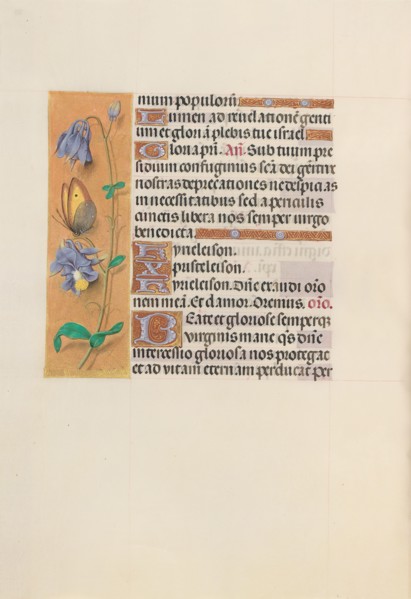 mium populorū
Lumen ad revelationē genti
um et gloriā plebis tue israel
Gloria pri. Añ. Sub tuum pre
sidium confugimus scā dei genitrix
nostras deprecationes ne despicias
in necessitatibus sed a periculis
cunctis libera nos semper virgo
benedicta.
Kyrieleison.
Xpristeleison.
Kyrieleison. Dñe exaudi oro
nem meā. Et clamor. Oremus. oro.
Beate et gloriose semperqꝫ
virginis marie qs dñe
intercessio gloriosa nos protegat
et ad vitam eternam perducat per